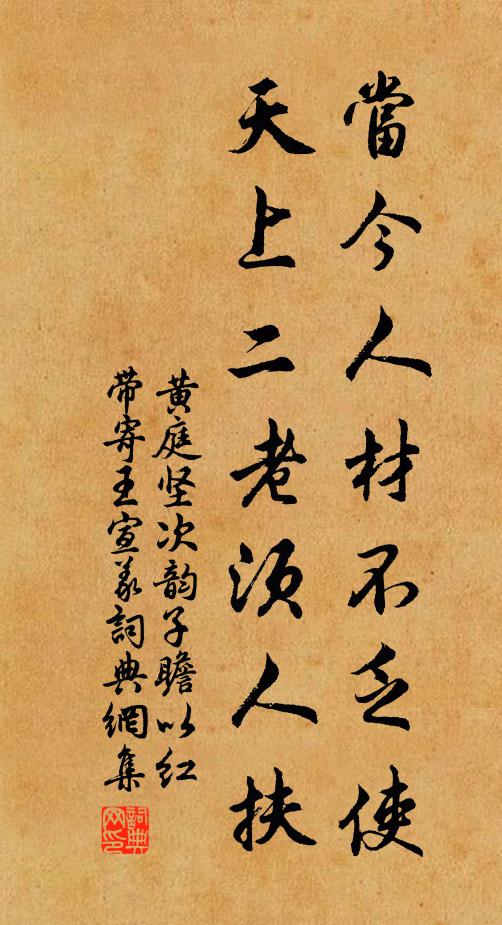 當今人材不乏使
天上二老須人扶
黄庭坚次韵子瞻以红
带寄王宣義詞典網集
詞典
网印